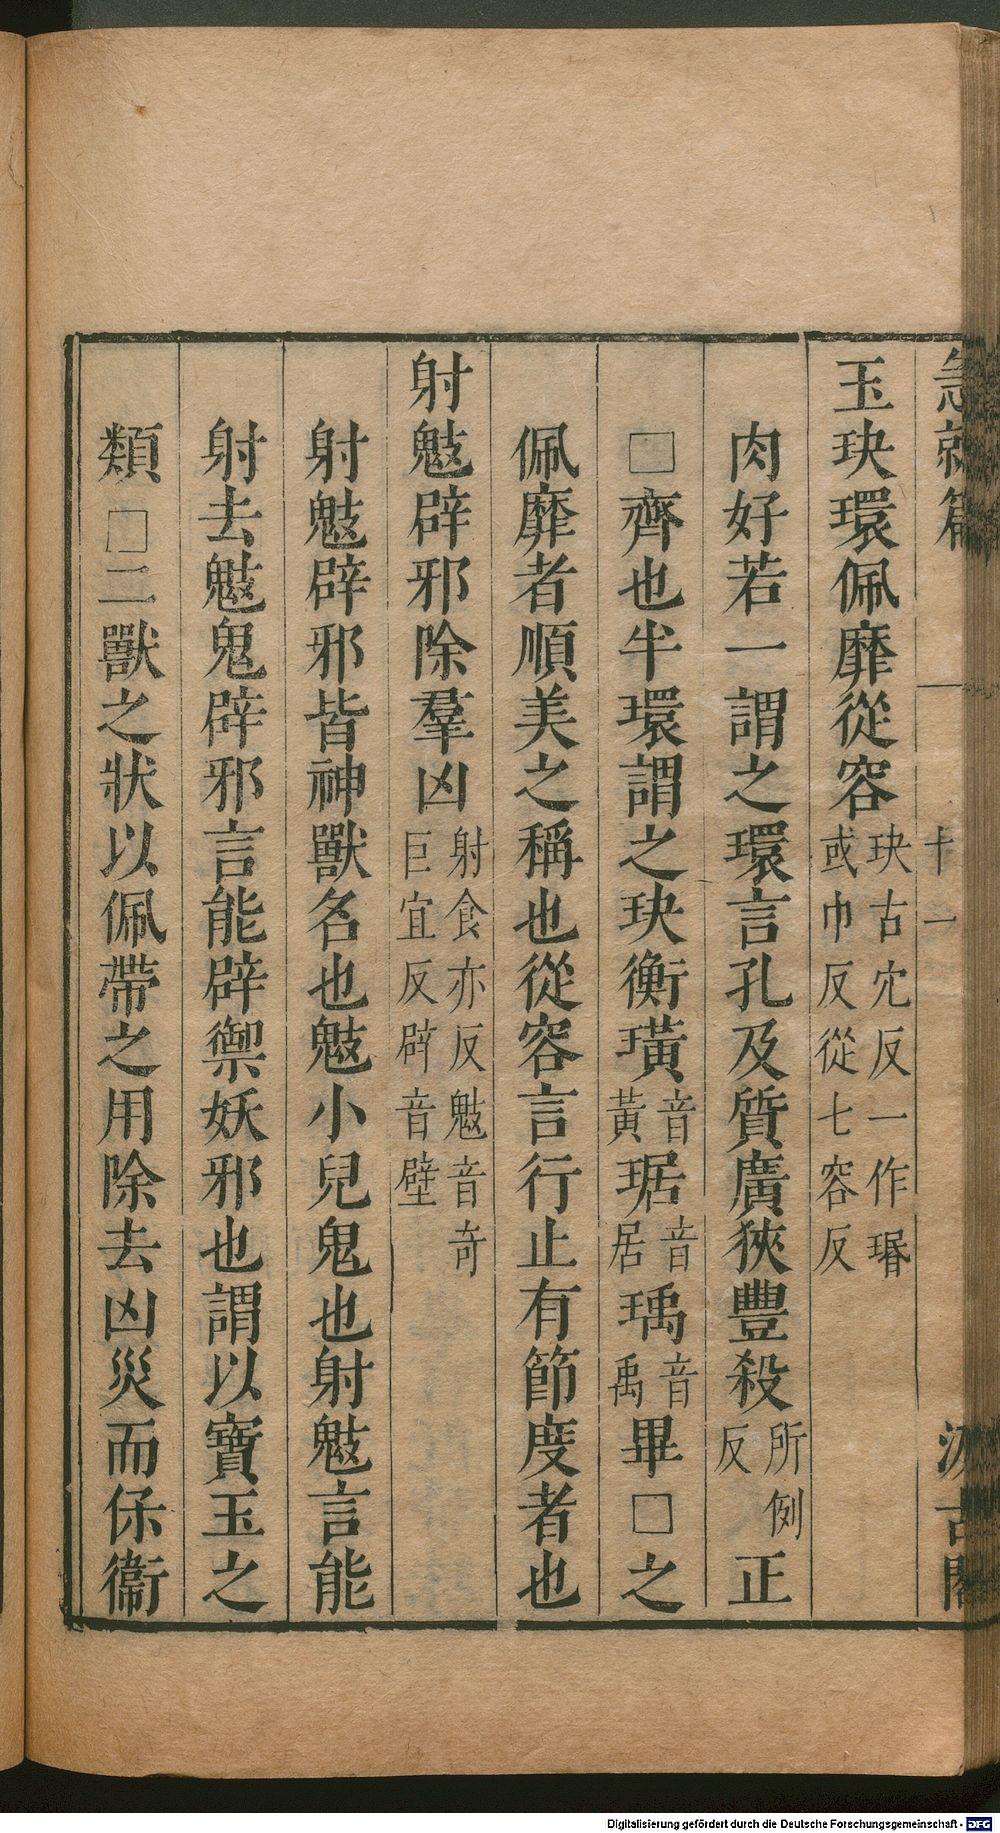 急就篇 十一 汲古閣
玉玦環佩靡從容玦古穴反一作瑉或巾反從七容反
肉好若一謂之環言孔及質廣狹豐殺所例反正
□齊也半環謂之玦衡璜音黃琚音居瑀音禹畢□之
佩靡者順美之稱也從容言行止有節度者也
射鬾辟邪除羣凶射食亦反鬾音奇巨宜反辟音壁
射鬾辟邪皆神獸名也鬾小兒鬼也射鬾言能
射去鬾鬼辟邪言能辟禦妖邪也謂以寶玉之
類□二獸之狀以佩帶之用除去凶災而保衞
Digitalisierung gefördert durch die Deutsche Forschungsgemeinschaft - DFG